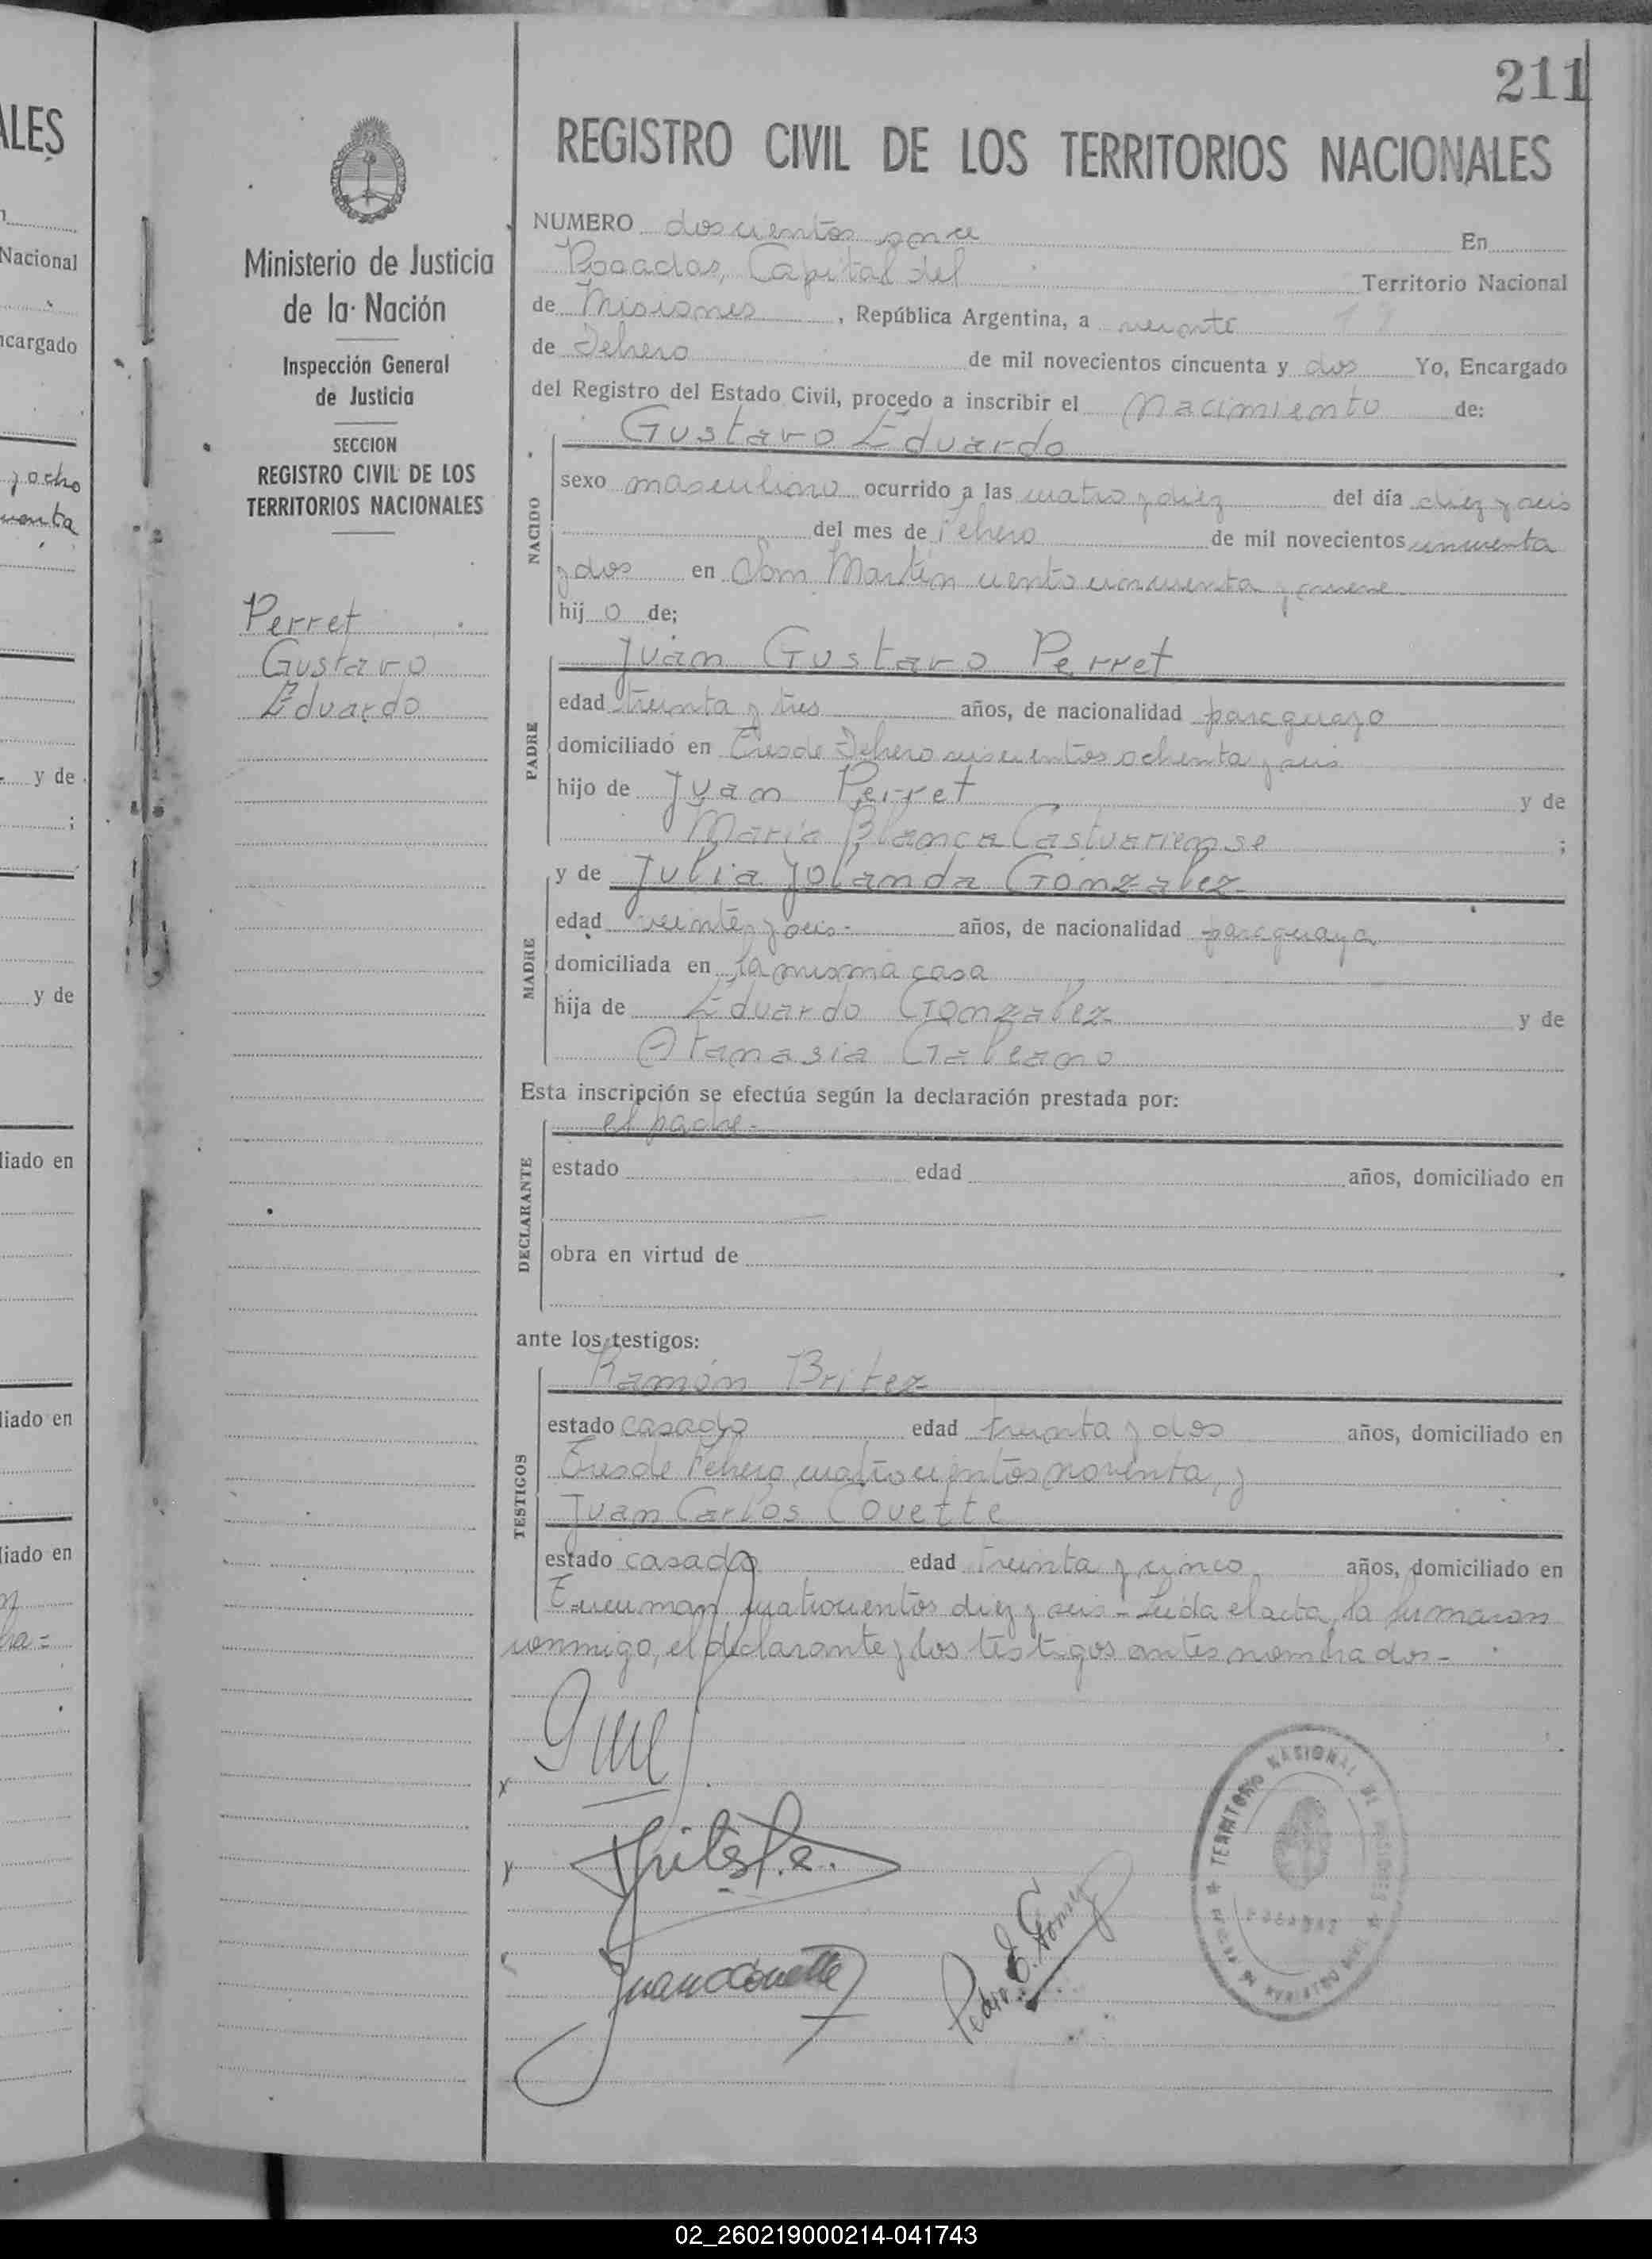 211
ALES
Nacional
ncargado
y ocho
y de
;
y de
liado en
liado en
liado en
Ministerio de Justicia
de la Nación
Inspección General
de Justicia
SECCION
REGISTRO CIVIL DE LOS
TERRITORIOS NACIONALES
Perret
Gustavo
Eduardo
REGISTRO CIVIL DE LOS TERRITORIOS NACIONALES
NUMERO doscientos once En
Posadas, Capital del Territorio Nacional
de Misiones, República Argentina, a veinte
de Febrero de mil novecientos cincuenta y dos Yo, Encargado
del Registro del Estado Civil, procedo a inscribir el Nacimiento de:
Gustavo Eduardo
NACIDO
sexo masculino ocurrido a las cuatro y diez del día diez y seis
del mes de Febrero de mil novecientos cincuenta
y dos en San Martín ciento cincuenta y nueve
hij o de;
Juan Gustavo Perret
PADRE
edad treinta y tres años, de nacionalidad paraguayo
domiciliado en Tres de Febrero seiscientos ochenta y seis
hijo de Juan Perret y de
María Blanca ;
y de Julia Yolanda Gonzalez
MADRE
edad veinte y seis- años, de nacionalidad paraguaya
domiciliada en la misma casa
hija de Eduardo Gonzalez y de
Atanasia Galeano
Esta inscripción se efectúa según la declaración prestada por:
el padre-
DECLARANTE
estado edad años, domiciliado en
obra en virtud de
ante los testigos:
Ramón Britez
TESTIGOS
estado casado edad treinta y dos años, domiciliado en
Tres de Febrero cuatrocientos noventa, y
Juan Carlos Covette
estado casado edad treinta y cinco años, domiciliado en
Tucuman cuatrocientos diez y seis- Leída el acta, la firmaron
conmigo, el declarante y los testigos antes nombrados-
Pedro E. Gomez
TERRITORIO NACIONAL DE MISIONES
POSADAS
02_260219000214-041743